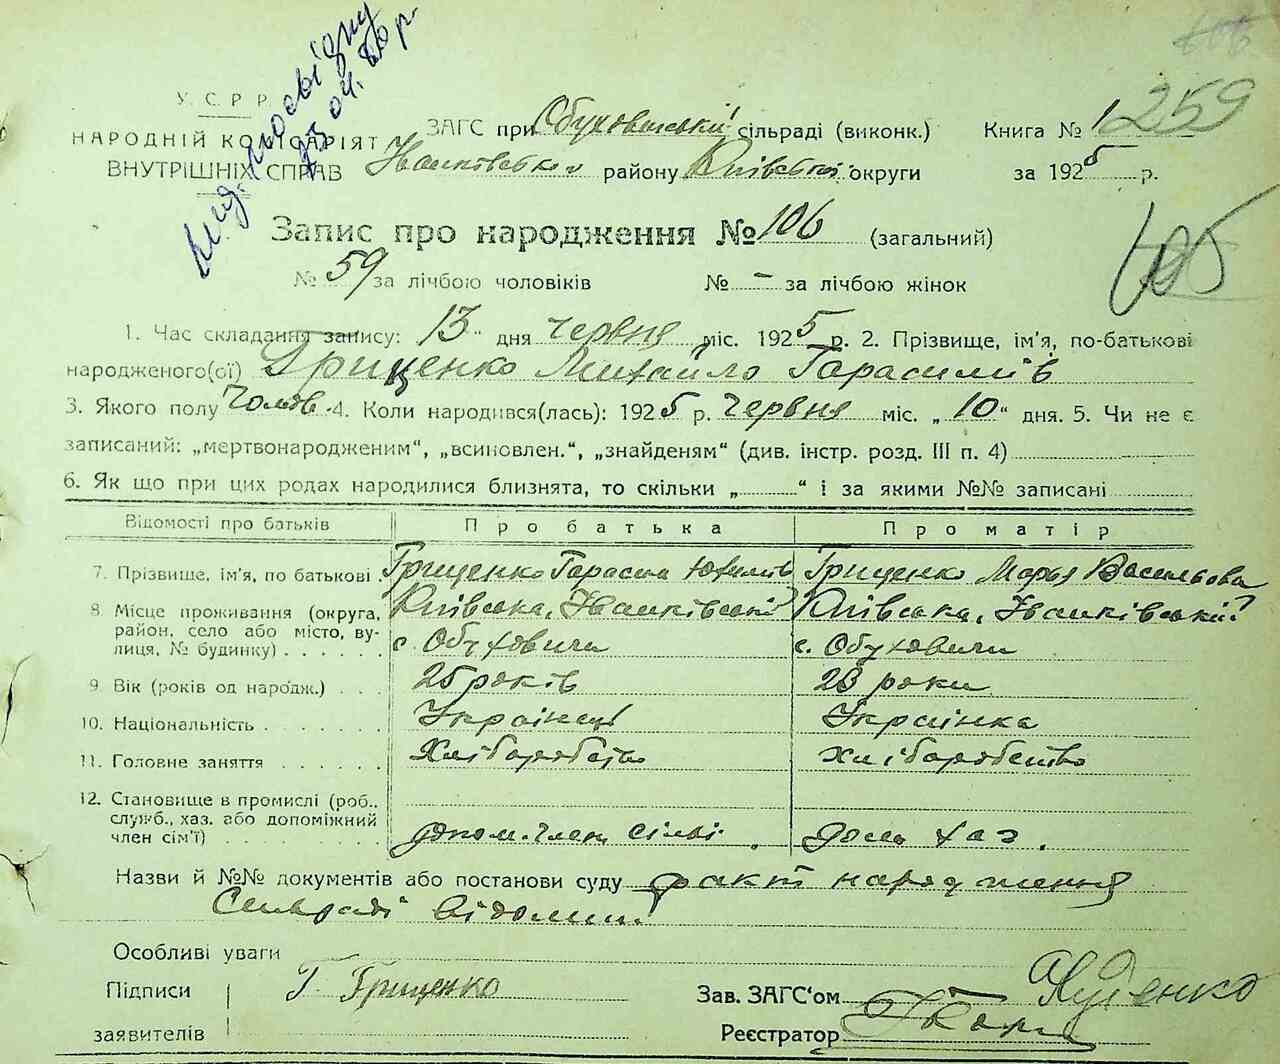 605
вид. посвідку
23 04. 80 р.
У. С. Р. Р.
НАРОДНІЙ КОМІСАРІЯТ
ВНУТРІШНІХ СПРАВ
ЗАГС при Обуховицькій сільраді (виконк.) Книга № 1 259
Іванківського району Київської округи за 1925 р.
Запис про народження № 106 (загальний)
605
№ 59 за лічбою чоловіків № – за лічбою жінок
1. Час складання запису: „13“ дня червня міс. 1925 р. 2. Прізвище, ім'я, по-батькові
народженого(ої) Грищенко Михайло Гарасимів
3. Якого полу чолов. 4. Коли народився(лась): 1925 р. червня міс. „10“ дня. 5. Чи не є
записаний: „мертвонародженим“, „всиновлен.“, „знайденям“ (див. інстр. розд. III п. 4)
6. Як що при цих родах народилися близнята, то скільки „ “ і за якими №№ записані
Відомості про батьків Про батька Про матір
7. Прізвище, ім'я, по батькові Грищенко Гарасим Юхимів Грищенко Марья Васильова
8 Місце проживання (округа, Київська, Іванківський Київська, Іванківський
район, село або місто, ву-
лиця, № будинку) с. Обуховичи с. Обуховичи
9. Вік (років од народж.) 25 років 23 роки
10. Національність Українець Українка
11. Головне заняття Хліборобство хліборобство
12. Становище в промислі (роб.,
служб., хаз. або допоміжний
член сім'ї) допом. член сімьі. дом. хаз.
Назви й №№ документів або постанови суду факт народження
Сільраді відомий
Особливі уваги
Підписи Г. Грищенко Зав. ЗАГС'ом
заявителів Реєстратор